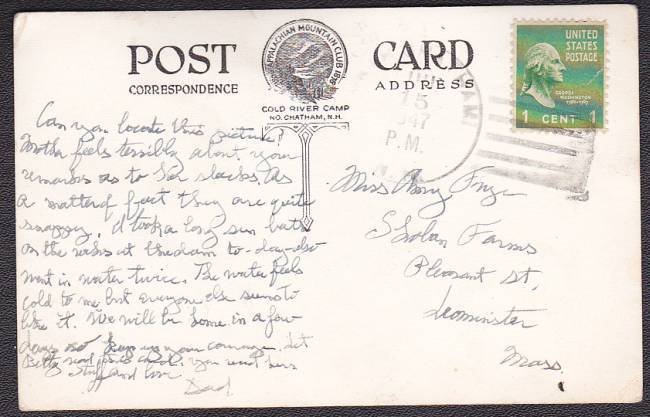 POST CARD
CORRESPONDENCE
ADDRESS
APPALACHIAN MOUNTAIN CLUB 1876
COLD RIVER CAMP
NO. CHATHAM, N.H.
UNITED
STATES
POSTAGE
GEORGE
WASHINGTON
1 CENT 1
15
1947
P.M.
Can you locate this picture?
Mother feels terribly about your
remarks as to her slacks. As
a matter of fact they are quite
snappy. I took a long sun bath
on the rocks at to-day-also
went in water twice. The water feels
cold to me but everyone else seems to
like it. We will be home in a few
days so keep up your courage. Let
Betty read this card. You
and love
Dad
Miss Frye
Sholan Farms
Pleasant St.
Leominster
Mass.